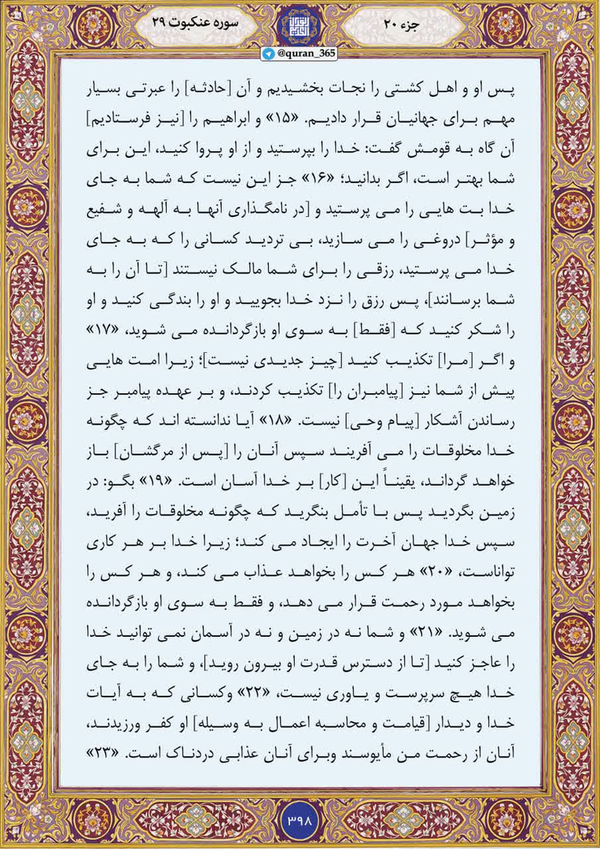 جزء ۲۰
سوره عنکبوت ۲۹
@quran_365
پس او و اهل کشتی را نجات بخشیدیم و آن [حادثه] را عبرتی بسیار
مهم برای جهانیان قرار دادیم. «۱۵» و ابراهیم را [نیز فرستادیم]
آن گاه به قومش گفت: خدا را بپرستید و از او پروا کنید، این برای
شما بهتر است، اگر بدانید؛ «۱۶» جز این نیست که شما به جای
خدا بت هایی را می پرستید و [در نامگذاری آنها به آلهه و شفیع
و مؤثر] دروغی را می سازید، بی تردید کسانی را که به جای
خدا می پرستید، رزقی را برای شما مالک نیستند [تا آن را به
شما برسانند]، پس رزق را نزد خدا بجویید و او را بندگی کنید و او
را شکر کنید که [فقط] به سوی او بازگردانده می شوید، «۱۷»
و اگر [مرا] تکذیب کنید [چیز جدیدی نیست]؛ زیرا امت هایی
پیش از شما نیز [پیامبران را] تکذیب کردند، و بر عهده پیامبر جز
رساندن آشکار [پیام وحی] نیست. «۱۸» آیا ندانسته اند که چگونه
خدا مخلوقات را می آفریند سپس آنان را [پس از مرگشان] باز
خواهد گرداند، یقیناً این [کار] بر خدا آسان است. «۱۹» بگو: در
زمین بگردید پس با تأمل بنگرید که چگونه مخلوقات را آفرید،
سپس خدا جهان آخرت را ایجاد می کند؛ زیرا خدا بر هر کاری
تواناست، «۲۰» هر کس را بخواهد عذاب می کند، و هر کس را
بخواهد مورد رحمت قرار می دهد، و فقط به سوی او بازگردانده
می شوید. «۲۱» و شما نه در زمین و نه در آسمان نمی توانید خدا
را عاجز کنید [تا از دسترس قدرت او بیرون روید]، و شما را به جای
خدا هیچ سرپرست و یاوری نیست، «۲۲» وکسانی که به آیات
خدا و دیدار [قیامت و محاسبه اعمال به وسیله] او کفر ورزیدند،
آنان از رحمت من مأیوسند وبرای آنان عذابی دردناک است. «۲۳»
۳۹۸